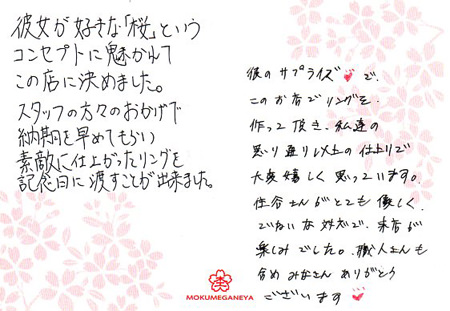 彼女が好きな「桜」という
コンセプトに魅かれて
この店に決めました。
スタッフの方々のおかげで
納期を早めてもらい
素敵に仕上がったリングを
記念日に渡すことが出来ました。
彼のサプライズ♥で、
このお店でリングを
作って頂き、私達の
思い通り以上の仕上りで
大変嬉しく思っています。
さんがとても優しく、
ていねいな対応で、来店が
楽しみでした。職人さんも
含めみなさんありがとう
ございます♥
MOKUMEGANEYA